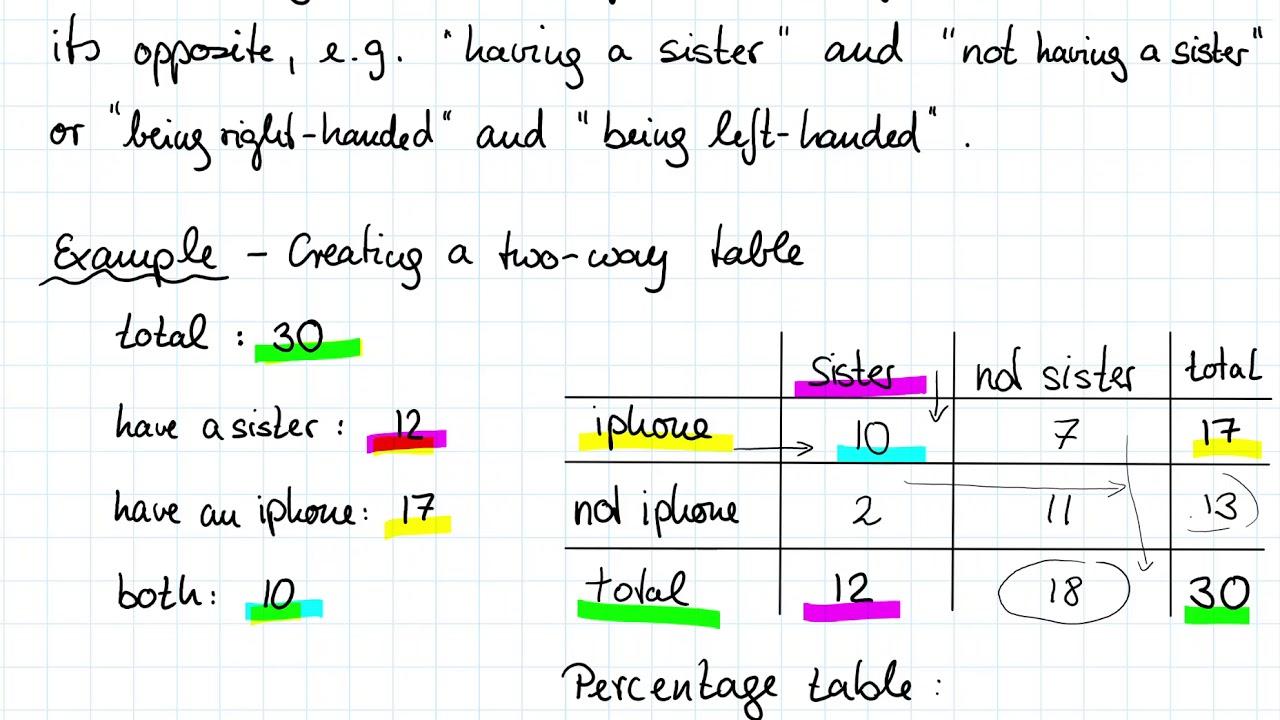 its opposite, e.g. "having a sister" and "not having a sister"
or "being right-handed" and "being left-handed".
Example - Creating a two-way table
total : 30
have a sister : 12
have an iphone: 17
both: 10
sister not sister total
iphone 10 7 17
not iphone 2 11 13
total 12 18 30
Percentage table :